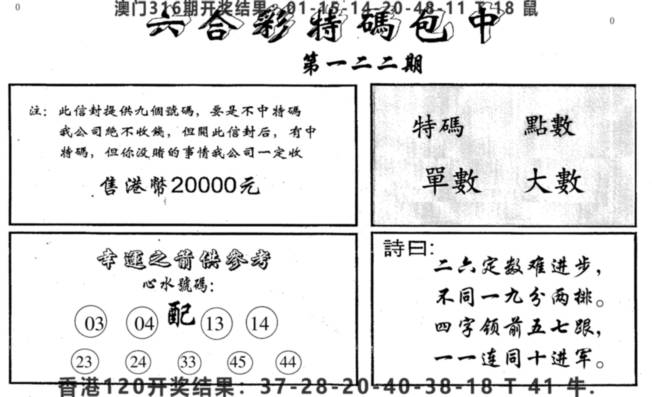 澳门316期开奖结果：01-15-14-20-48-11 T 18 鼠
0
0
六合彩特碼包中
第一二二期
注：此信封提供九個號碼，要是不中特碼
我公司絶不收錢，但開此信封后，有中
特碼，但你没賭的事情我公司一定收
售港幣20000元
特碼 點數
單數 大數
幸運之箭供參考
心水號碼：
03 04 配 13 14
23 24 33 45 44
詩曰：
二六定数难进步，
不同一九分两排。
四字领前五七跟，
一一连同十进军。
香港120开奖结果：37-28-20-40-38-18 T 41 牛.